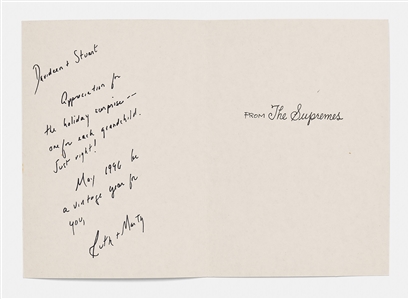 Davidson + Stuart
Appreciation for
the holiday surprise --
one for each grandchild.
Just right!
May 1996 be
a vintage year for
you,
Ruth + Marty
FROM The Supremes